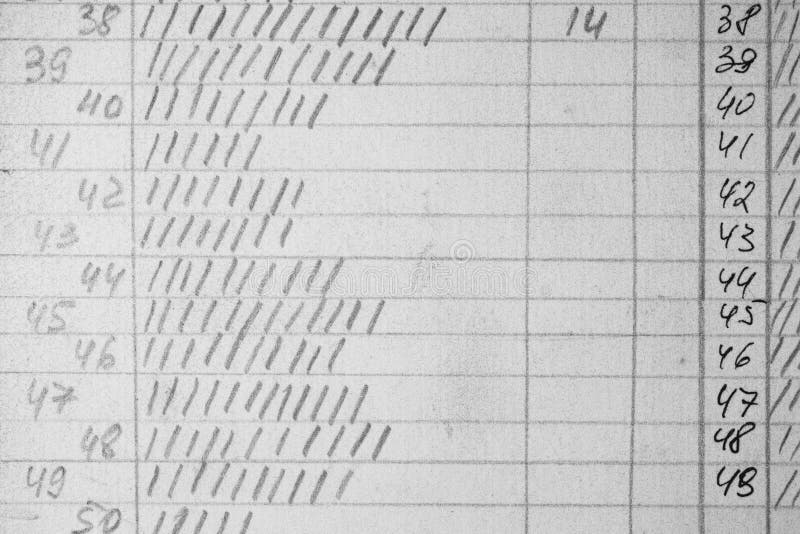 38 14 38
39 39
40 40
41 41
42 42
43 43
44 44
45 45
46 46
47 47
48 48
49 49
50
dreamstime